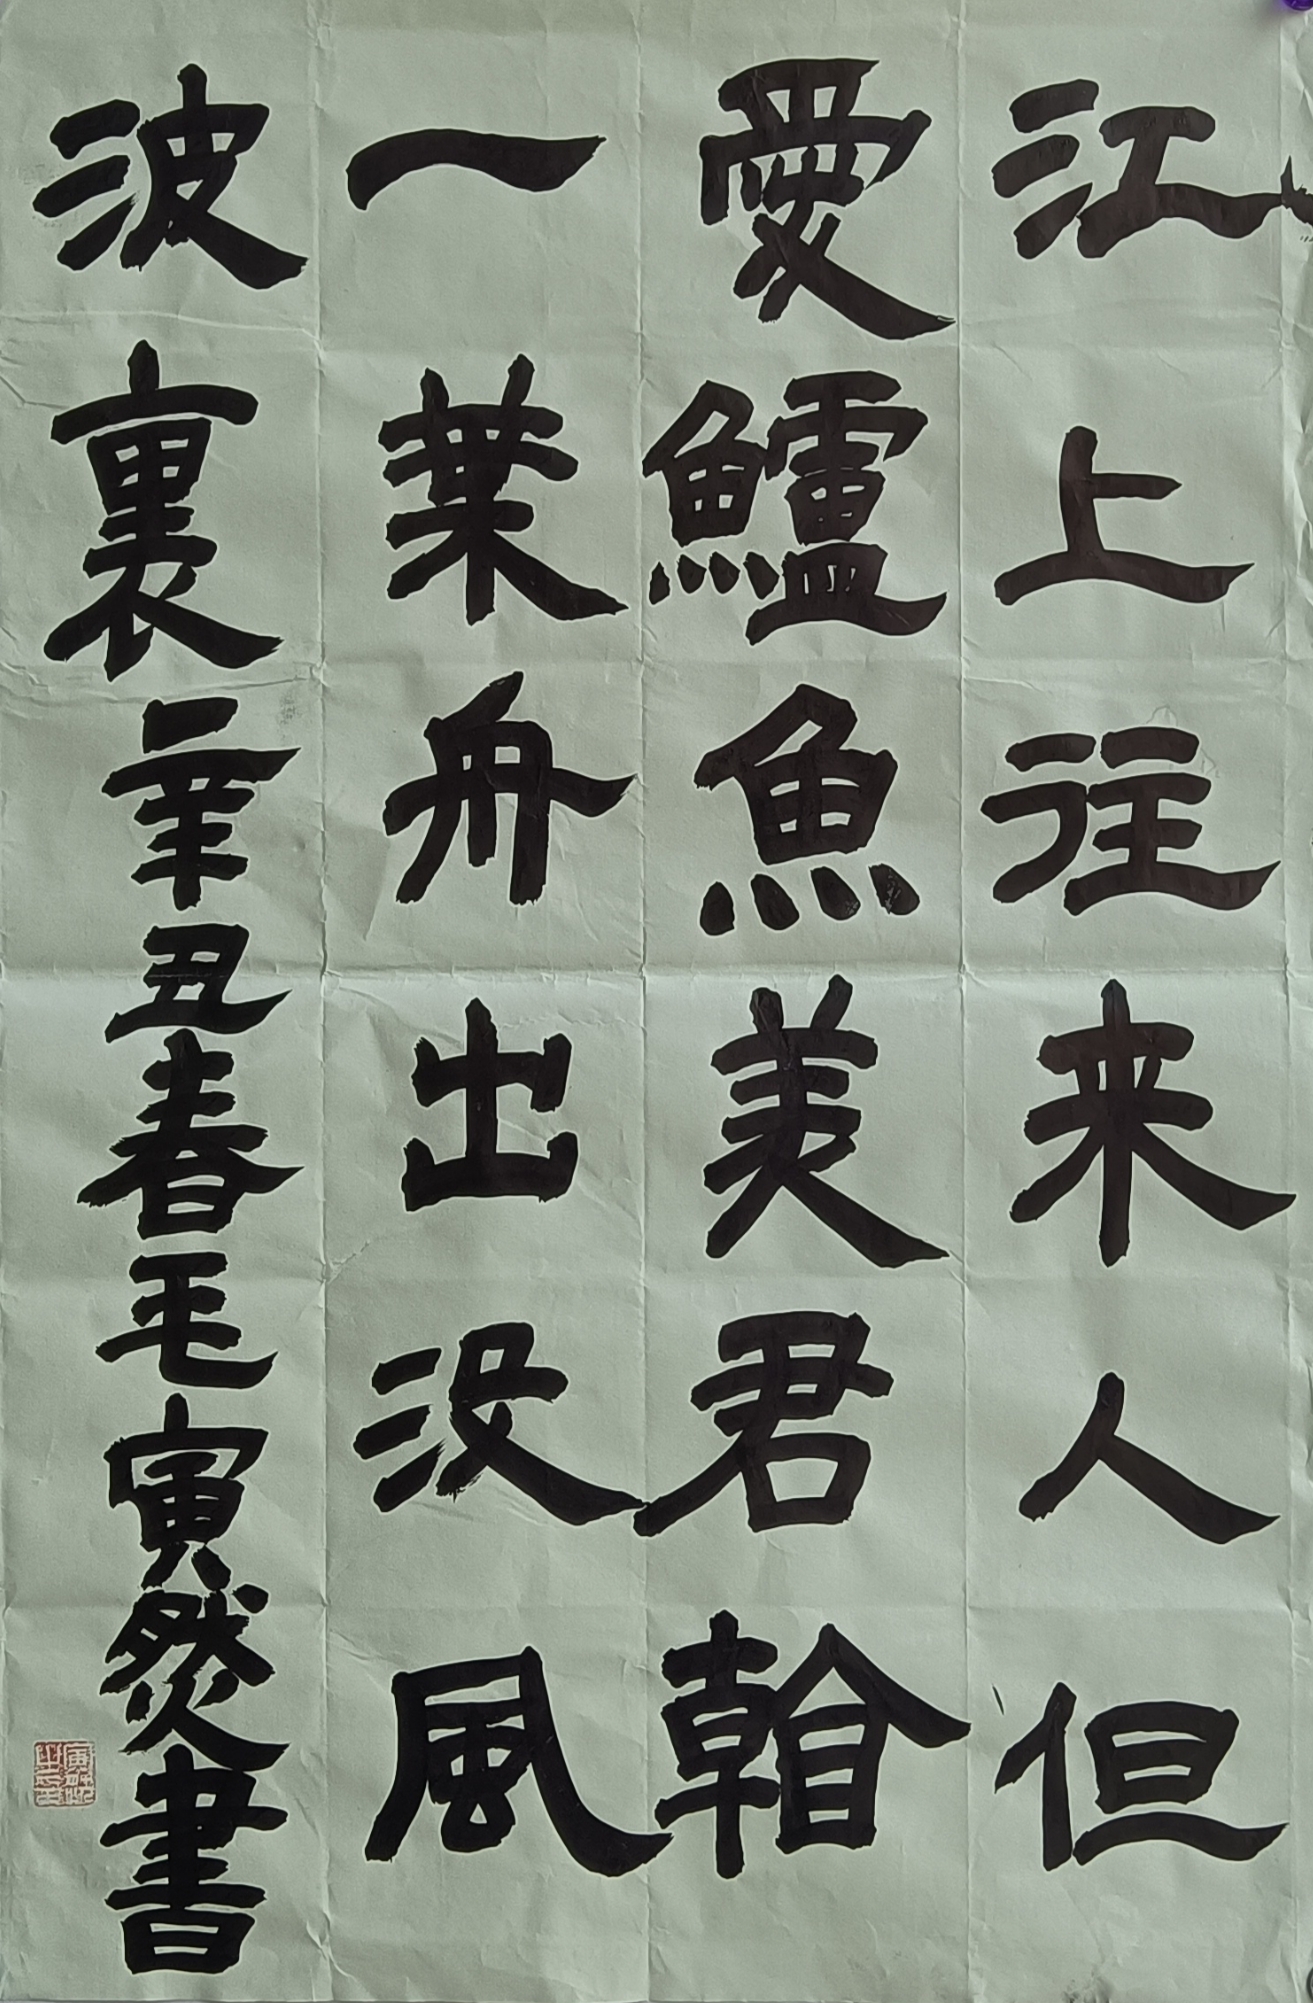 江上往来人但
愛鱸魚美君𩏂
一葉舟出没風
波裏辛丑春毛寅㷼書